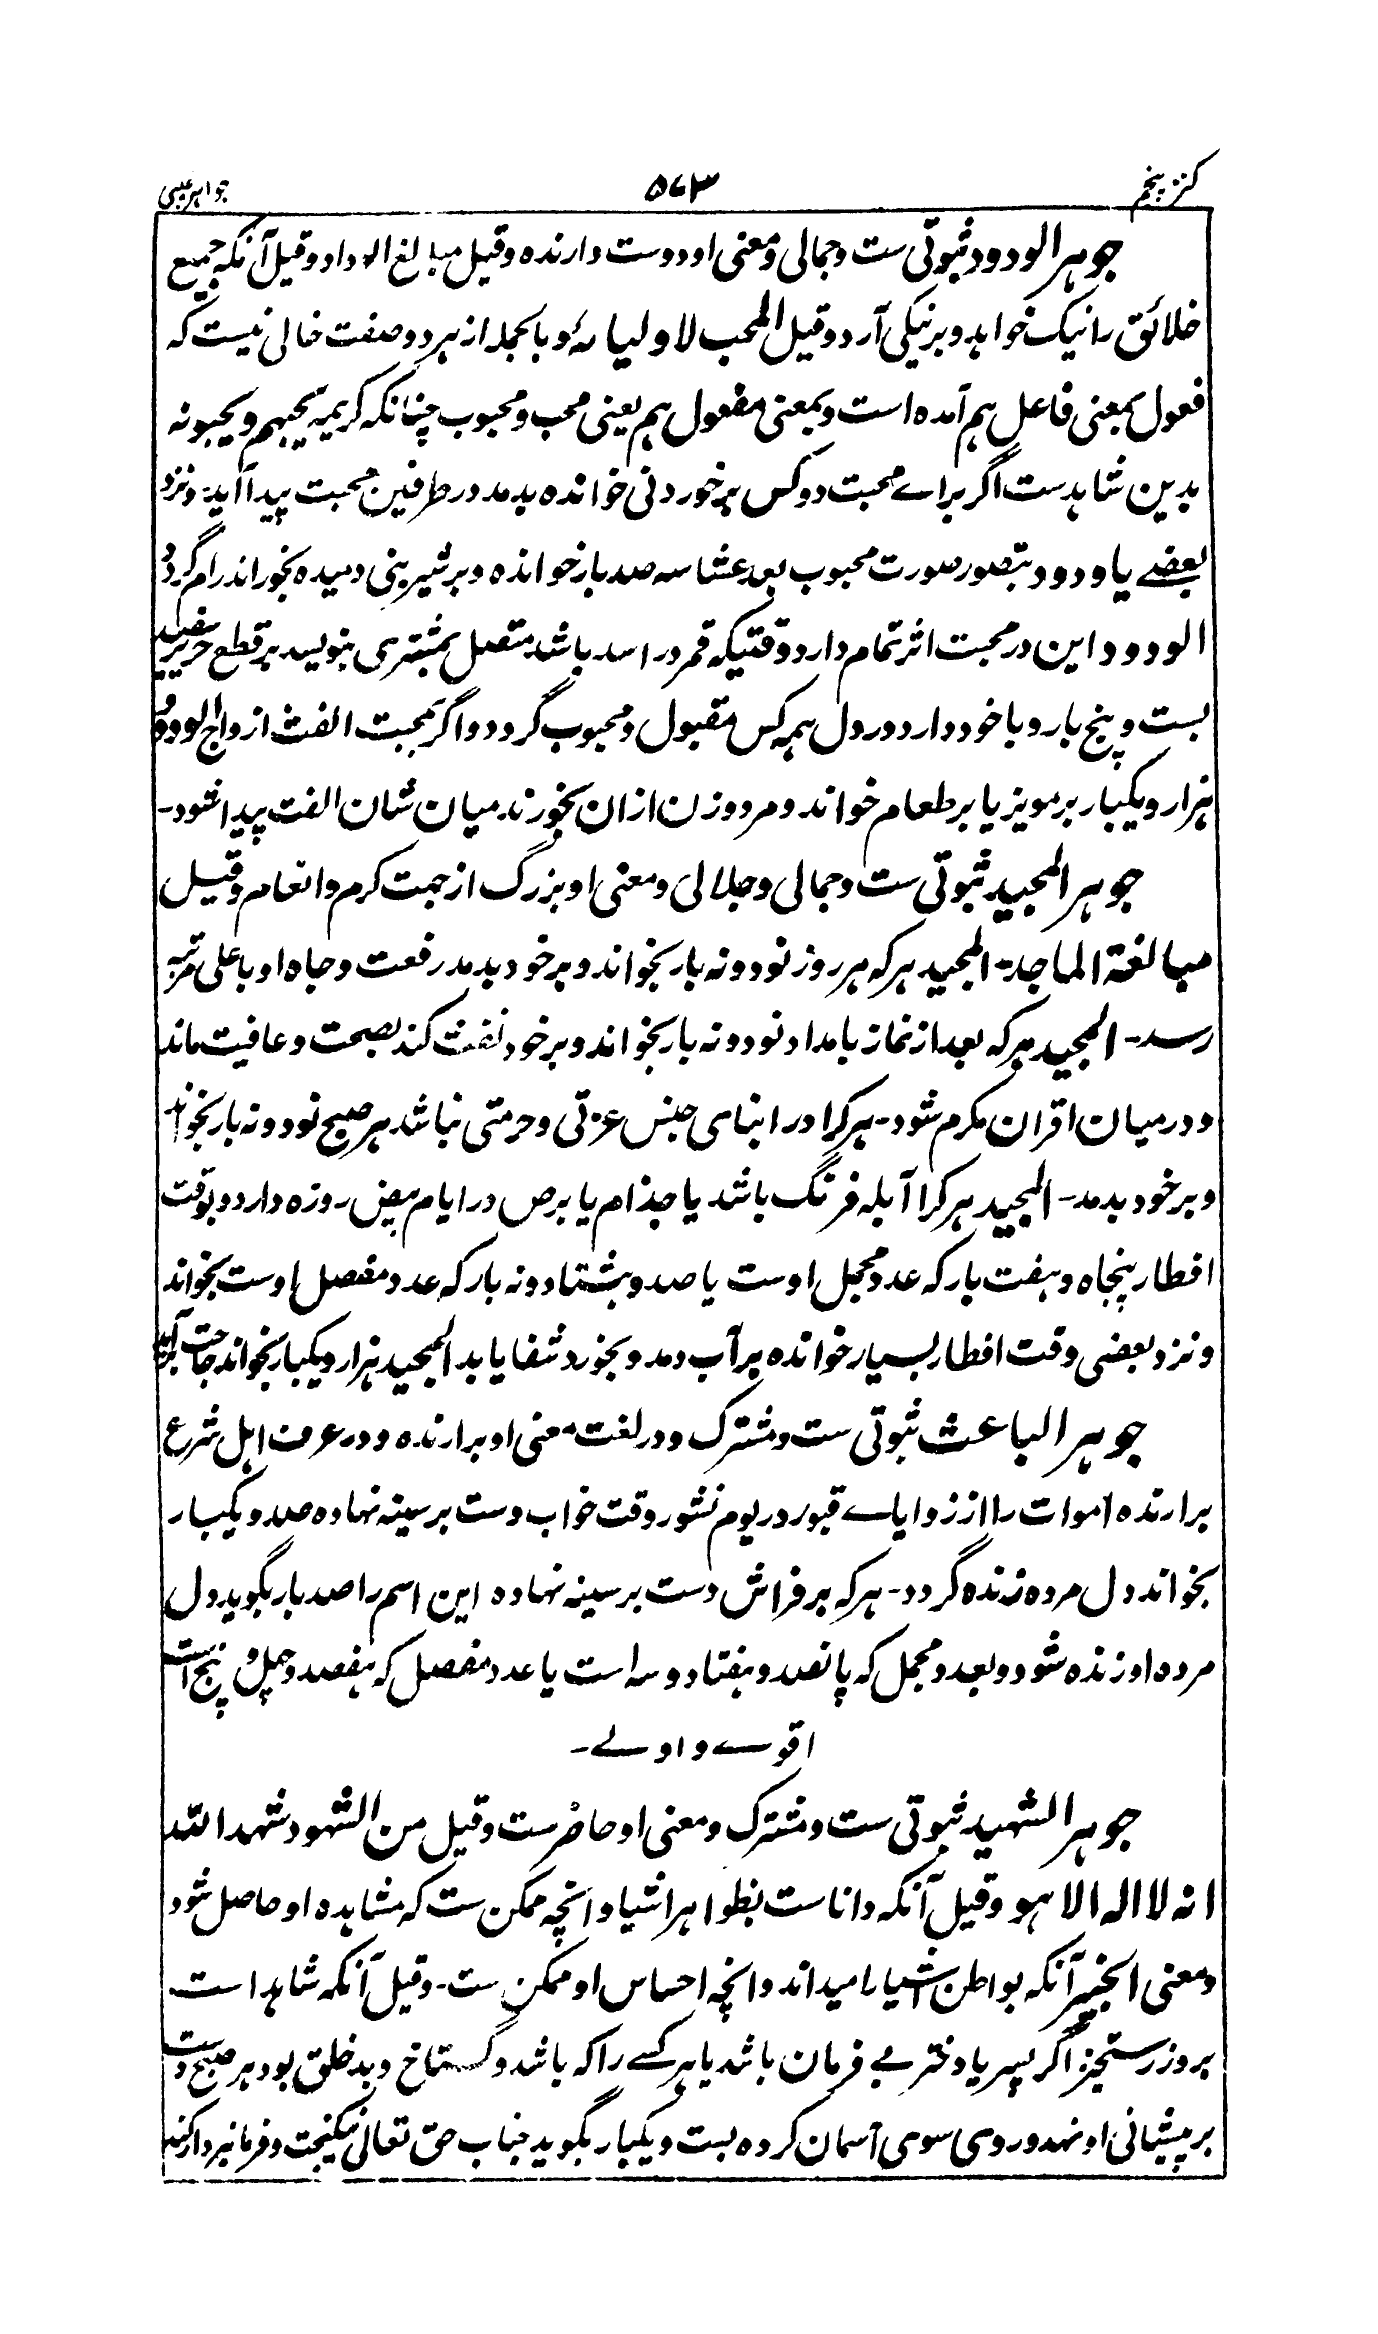 کنز پنجم
۵۶۳
جواہر غیبی
جوہر الودود ثبوتی ست و جمالی و معنی او دوست دارندہ و قیل مبالغ الوداد و قیل آنکہ جمیع
خلائق را نیک خواہد و برنیکی آرد و قیل المحب لاولیائہ و بالجملہ از ہر دو صفت خالی نیست کہ
فعول بمعنی فاعل ہم آمدہ است و بمعنی مفعول ہم یعنی محب و محبوب چنانکہ کریمہ یحبہم و یحبونہ
بدین شاہدست اگر برائے محبت دو کس بر خوردنی خواندہ بدمد در طرفین محبت پیدا آید و نزد
بعضے یا ودود بتصور صورت محبوب بعد عشا سہ صد بار خواندہ و بر شیرینی دمیدہ بخوراند رام گردد
الودود این در محبت اثر تمام دارد وقتیکہ قمر در اسد باشد متصل بمشتری بنویسد بر قطع حریر سفید
بست و پنج بار و با خود دارد در دل ہمہ کس مقبول و محبوب گردد و اگر بمحبت الفت ازواج الودود
ہزار و یکبار بر مویز یا بر طعام خواند و مرد و زن ازان بخورند میان شان الفت پیدا شود۔
جوہر المجید ثبوتی ست و جمالی و جلالی و معنی او بزرگ از جہت کرم و انعام و قیل
مبالغۃ الماجد۔ المجید ہر کہ ہر روز نود و نہ بار بخواند و بر خود بدمد رفعت و جاہ او باعلی مرتبہ
رسد۔ المجید ہر کہ بعد از نماز بامداد نود و نہ بار بخواند و بر خود نفث کند بصحت و عافیت ماند
و درمیان اقران مکرم شود۔ ہر کرا در ابنای جنس عزتی و حرمتی نباشد ہر صبح نود و نہ بار بخواند
و بر خود بدمد۔ المجید ہر کرا آبلہ فرنگ باشد یا جذام یا برص در ایام بیض روزہ دارد و بوقت
افطار پنجاہ و ہفت بار کہ عدد مجمل اوست یا صد و ہشتاد و نہ بار کہ عدد مفصل اوست بخواند
و نزد بعضی وقت افطار بسیار خواندہ بر آب دمد و بخورد شفا یابد المجید ہزار و یکبار بخواند حاجت برآید
جوہر الباعث ثبوتی ست و مشترک و در لغت معنی او برارندہ و در عرف اہل شرع
برارندہ اموات را از زوایائے قبور در یوم نشور وقت خواب دست بر سینہ نہادہ صد و یکبار
بخواند دل مردہ زندہ گردد۔ ہر کہ بر فراش دست بر سینہ نہادہ این اسم را صد بار بگوید دل
مردہ او زندہ شود و بعدد مجمل کہ پانصد و ہفتاد و سہ است یا عدد مفصل کہ ہفصد و چہل و پنج است
اقوے و اولے۔
جوہر الشہید ثبوتی ست و مشترک و معنی او حاضرست و قیل من الشہود شہد اللہ
انہ لا الہ الا ہو و قیل آنکہ داناست بظواہر اشیا و انچہ ممکن ست کہ مشاہدہ او حاصل شود
و معنی الخبیر آنکہ بواطن اشیا را میداند و انچہ احساس او ممکن ست۔ و قیل آنکہ شاہد است
بروز رستخیز اگر پسر یا دختر بے فرمان باشد یا ہر کسے را کہ باشد و گستاخ و بد خلق بود ہر صبح دست
بر پیشانی او نہد و روی سوی آسمان کردہ بست و یکبار بگوید جناب حق تعالی نیکبخت و فرمانبردار کند